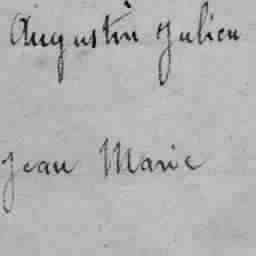 Augustin Julien
Jean Marie